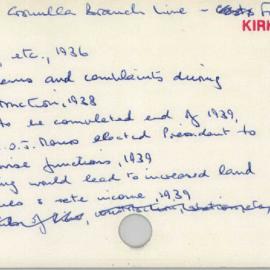 Cronulla Branch Line -
KIRK
, etc., 1936
and complaints during
ruction, 1938
to be completed end of 1939,
. O.J. Monro elected President to
ise functions, 1939
ng would lead to increased land
ues & rate income, 1939